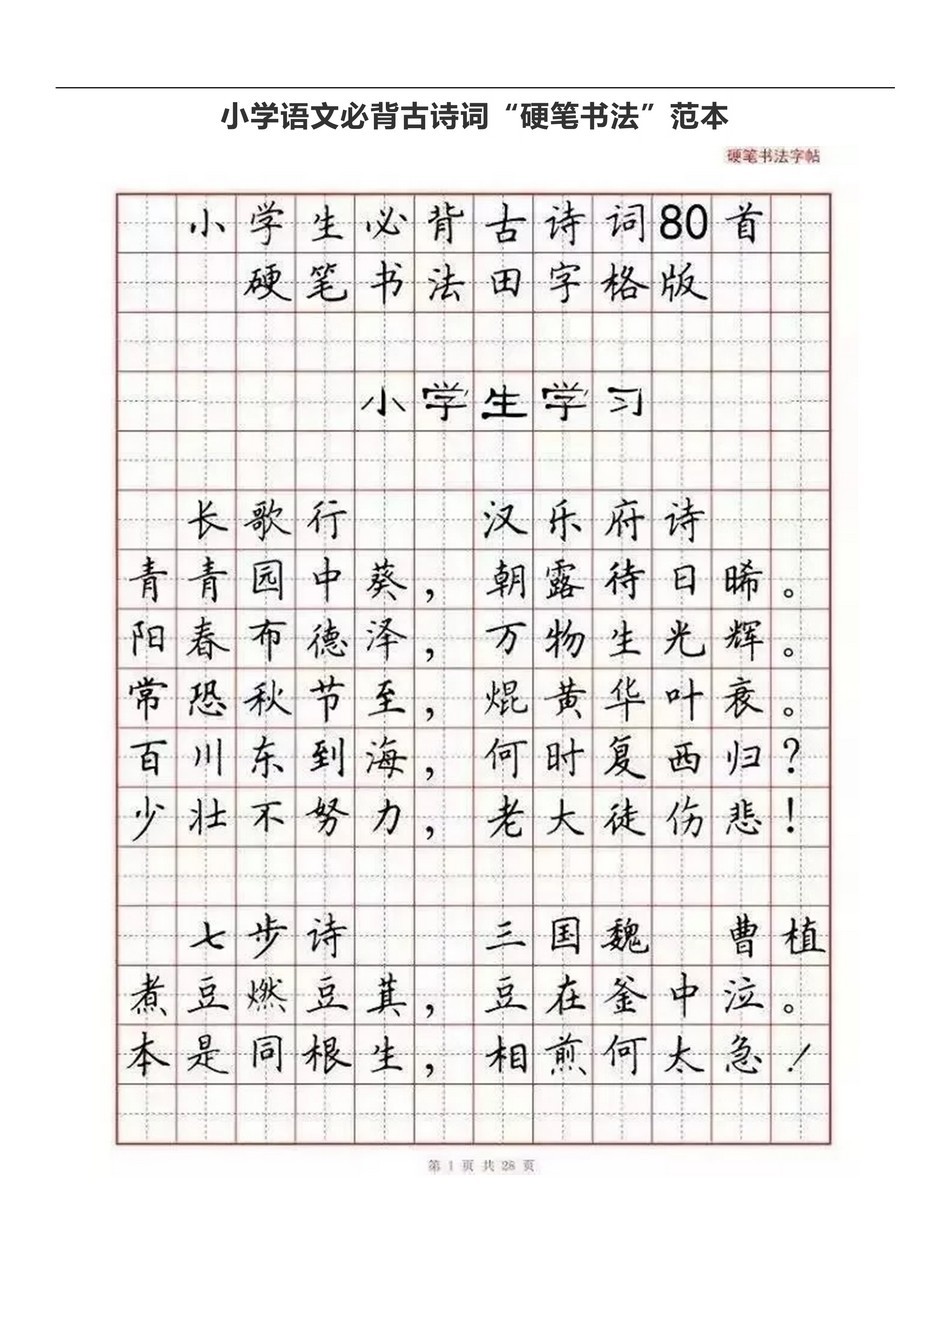 小学语文必背古诗词“硬笔书法”范本
硬笔书法字帖
小学生必背古诗词80首
硬笔书法田字格版
小学生学习
长歌行 汉乐府诗
青青园中葵，朝露待日晞。
阳春布德泽，万物生光辉。
常恐秋节至，焜黄华叶衰。
百川东到海，何时复西归？
少壮不努力，老大徒伤悲！
七步诗 三国魏 曹植
煮豆燃豆萁，豆在釜中泣。
本是同根生，相煎何太急！
第 1 页 共 28 页